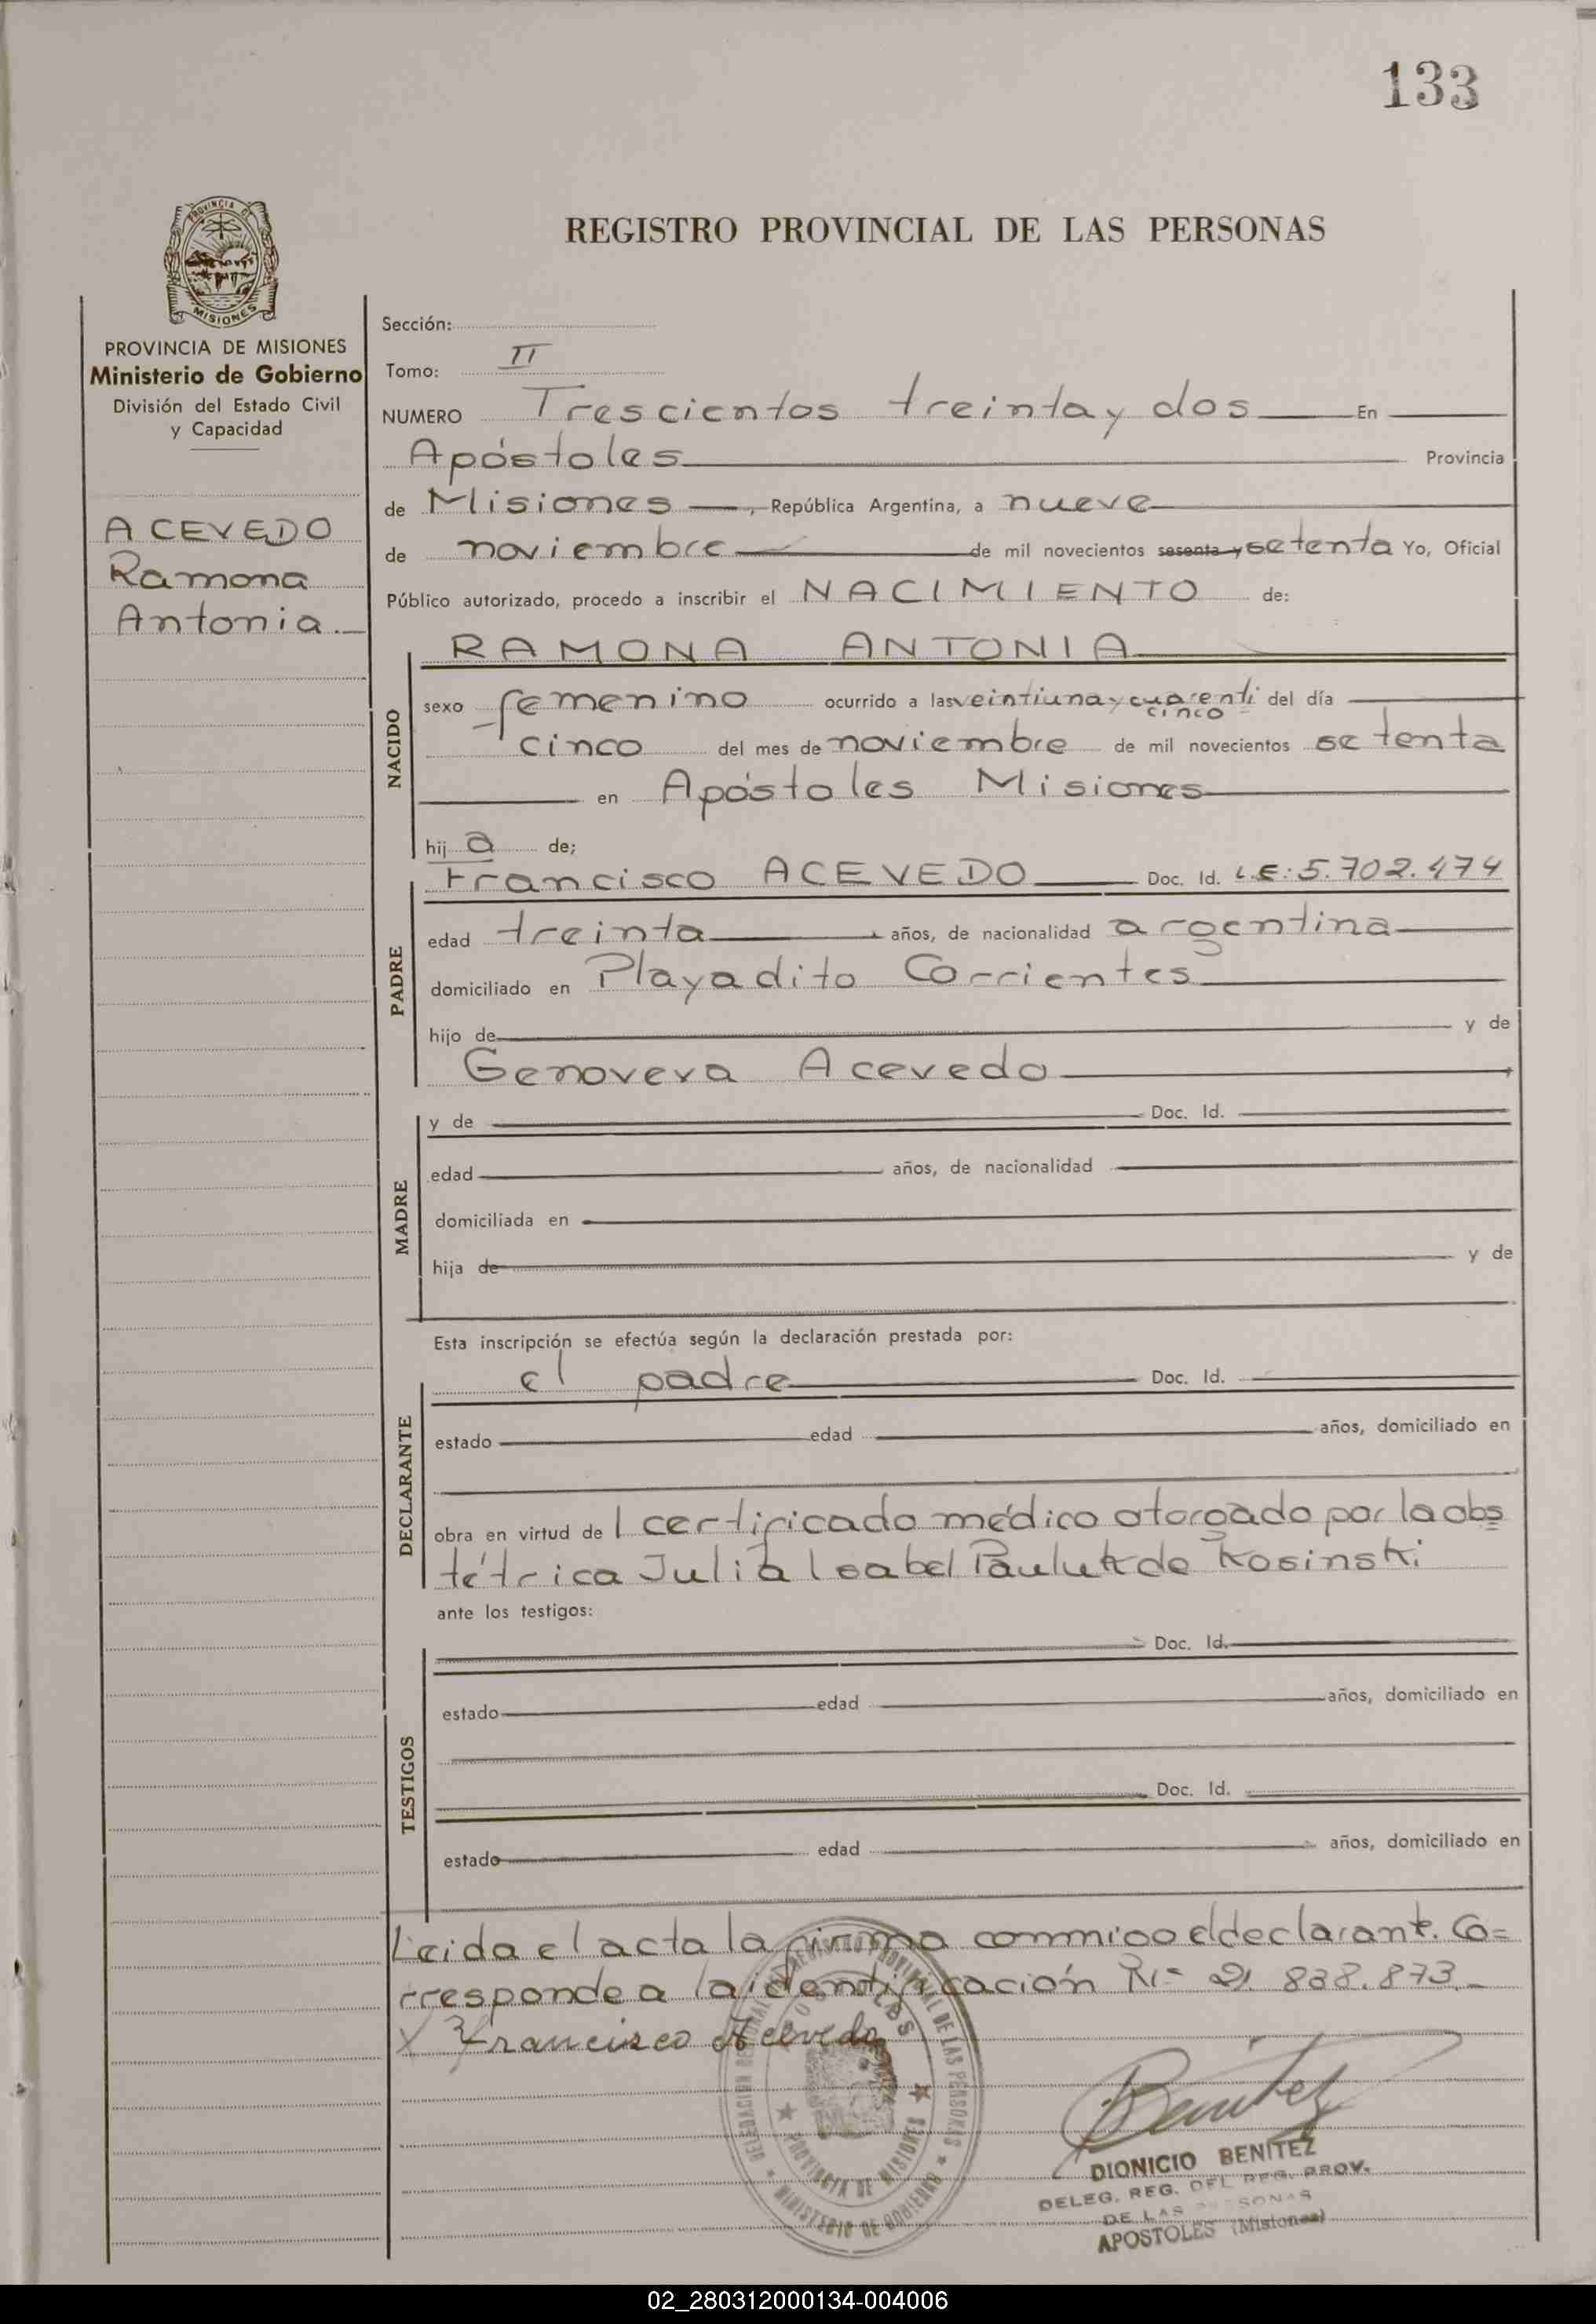 133
PROVINCIA DE
MISIONES
REGISTRO PROVINCIAL DE LAS PERSONAS
PROVINCIA DE MISIONES
Ministerio de Gobierno
División del Estado Civil
y Capacidad
ACEVEDO
Ramona
Antonia.
Sección:
Tomo: II
NUMERO Trescientos treinta y dos En
Apóstoles Provincia
de Misiones, República Argentina, a nueve
de noviembre de mil novecientos sesenta y setenta Yo, Oficial
Público autorizado, procedo a inscribir el NACIMIENTO de:
NACIDO
RAMONA ANTONIA
sexo femenino ocurrido a las veintiuna y cuarenti del día
cinco
cinco del mes de noviembre de mil novecientos setenta
en Apóstoles Misiones
hij a de;
PADRE
Francisco ACEVEDO Doc. Id. L.E: 5.702.474
edad treinta años, de nacionalidad argentina
domiciliado en Playadito Corrientes
hijo de y de
Genoveva Acevedo
MADRE
y de Doc. Id.
edad años, de nacionalidad
domiciliada en
hija de y de
Esta inscripción se efectúa según la declaración prestada por:
DECLARANTE
el padre Doc. Id.
estado edad años, domiciliado en
obra en virtud de l certificado médico otorgado por la obs=
tétrica Julia Isabel de Kosinski
ante los testigos:
TESTIGOS
Doc. Id.
estado edad años, domiciliado en
Doc. Id.
estado edad años, domiciliado en
Leida el acta la firma conmigo el declarante. Co=
rresponde a la identificación 21.838.873.
X Francisco Acevedo
PROVINCIA DE MISIONES
MINISTERIO DE GOBIERNO
Benitez
DIONICIO BENITEZ
DELEG. REG. DEL REG. PROV.
DE LAS PERSONAS
APOSTOLES (Misiones)
02_280312000134-004006